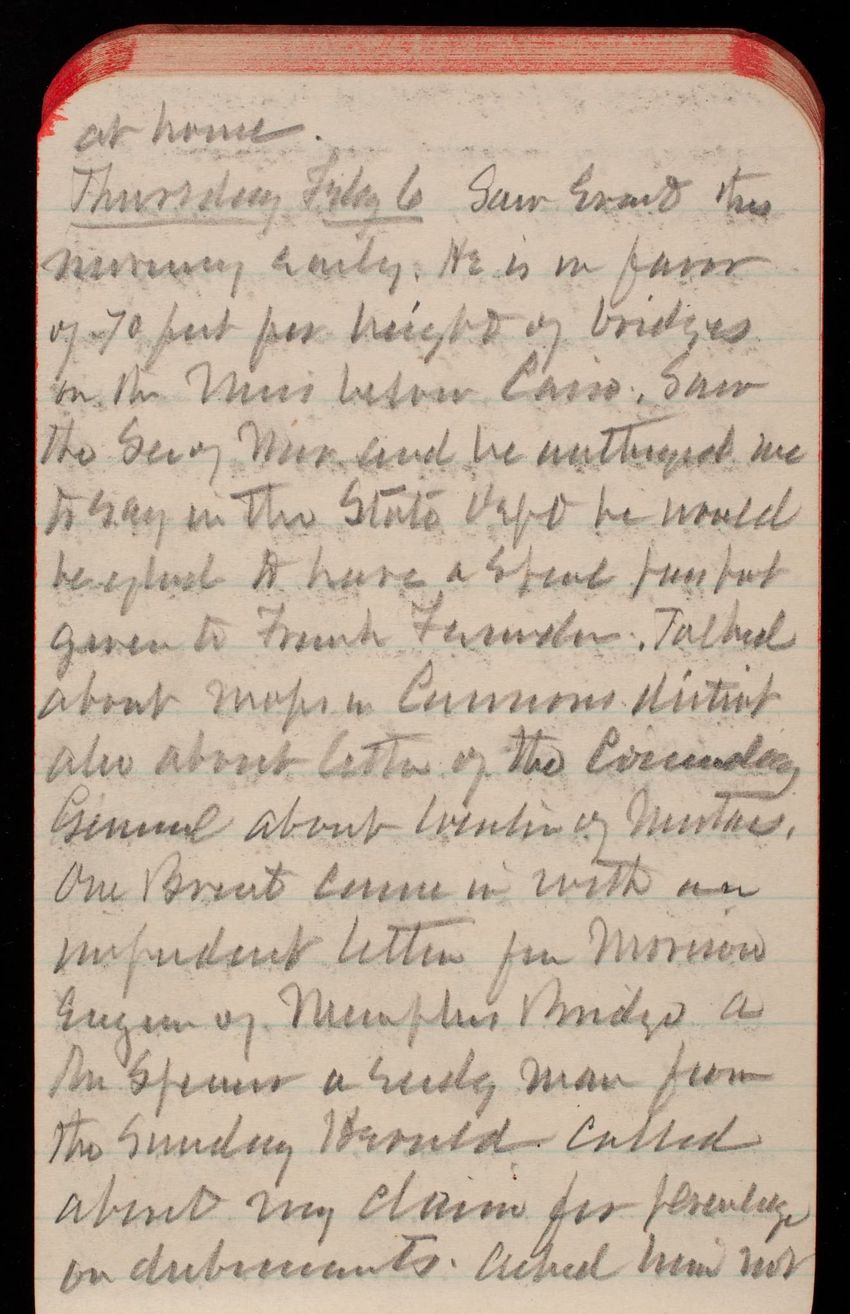 at home.
Thursday Feby 6 Saw Grant this
morning early. He is in favor
of 70 feet for height of bridges
on the Miss below Cairo. Saw
the Sec of War and he authorized me
to say in the State Dept he would
be glad to have a Special passport
given to Frank
Talked
about maps in Cummons district
also about letter of the
General about
One Brent came in with an
impudent letter from Morison
Engineer of Memphis Bridge. A
Mr Spencer a seedy man from
the Sunday Herald called
about my claim for percentage
on disbursements. Asked him not